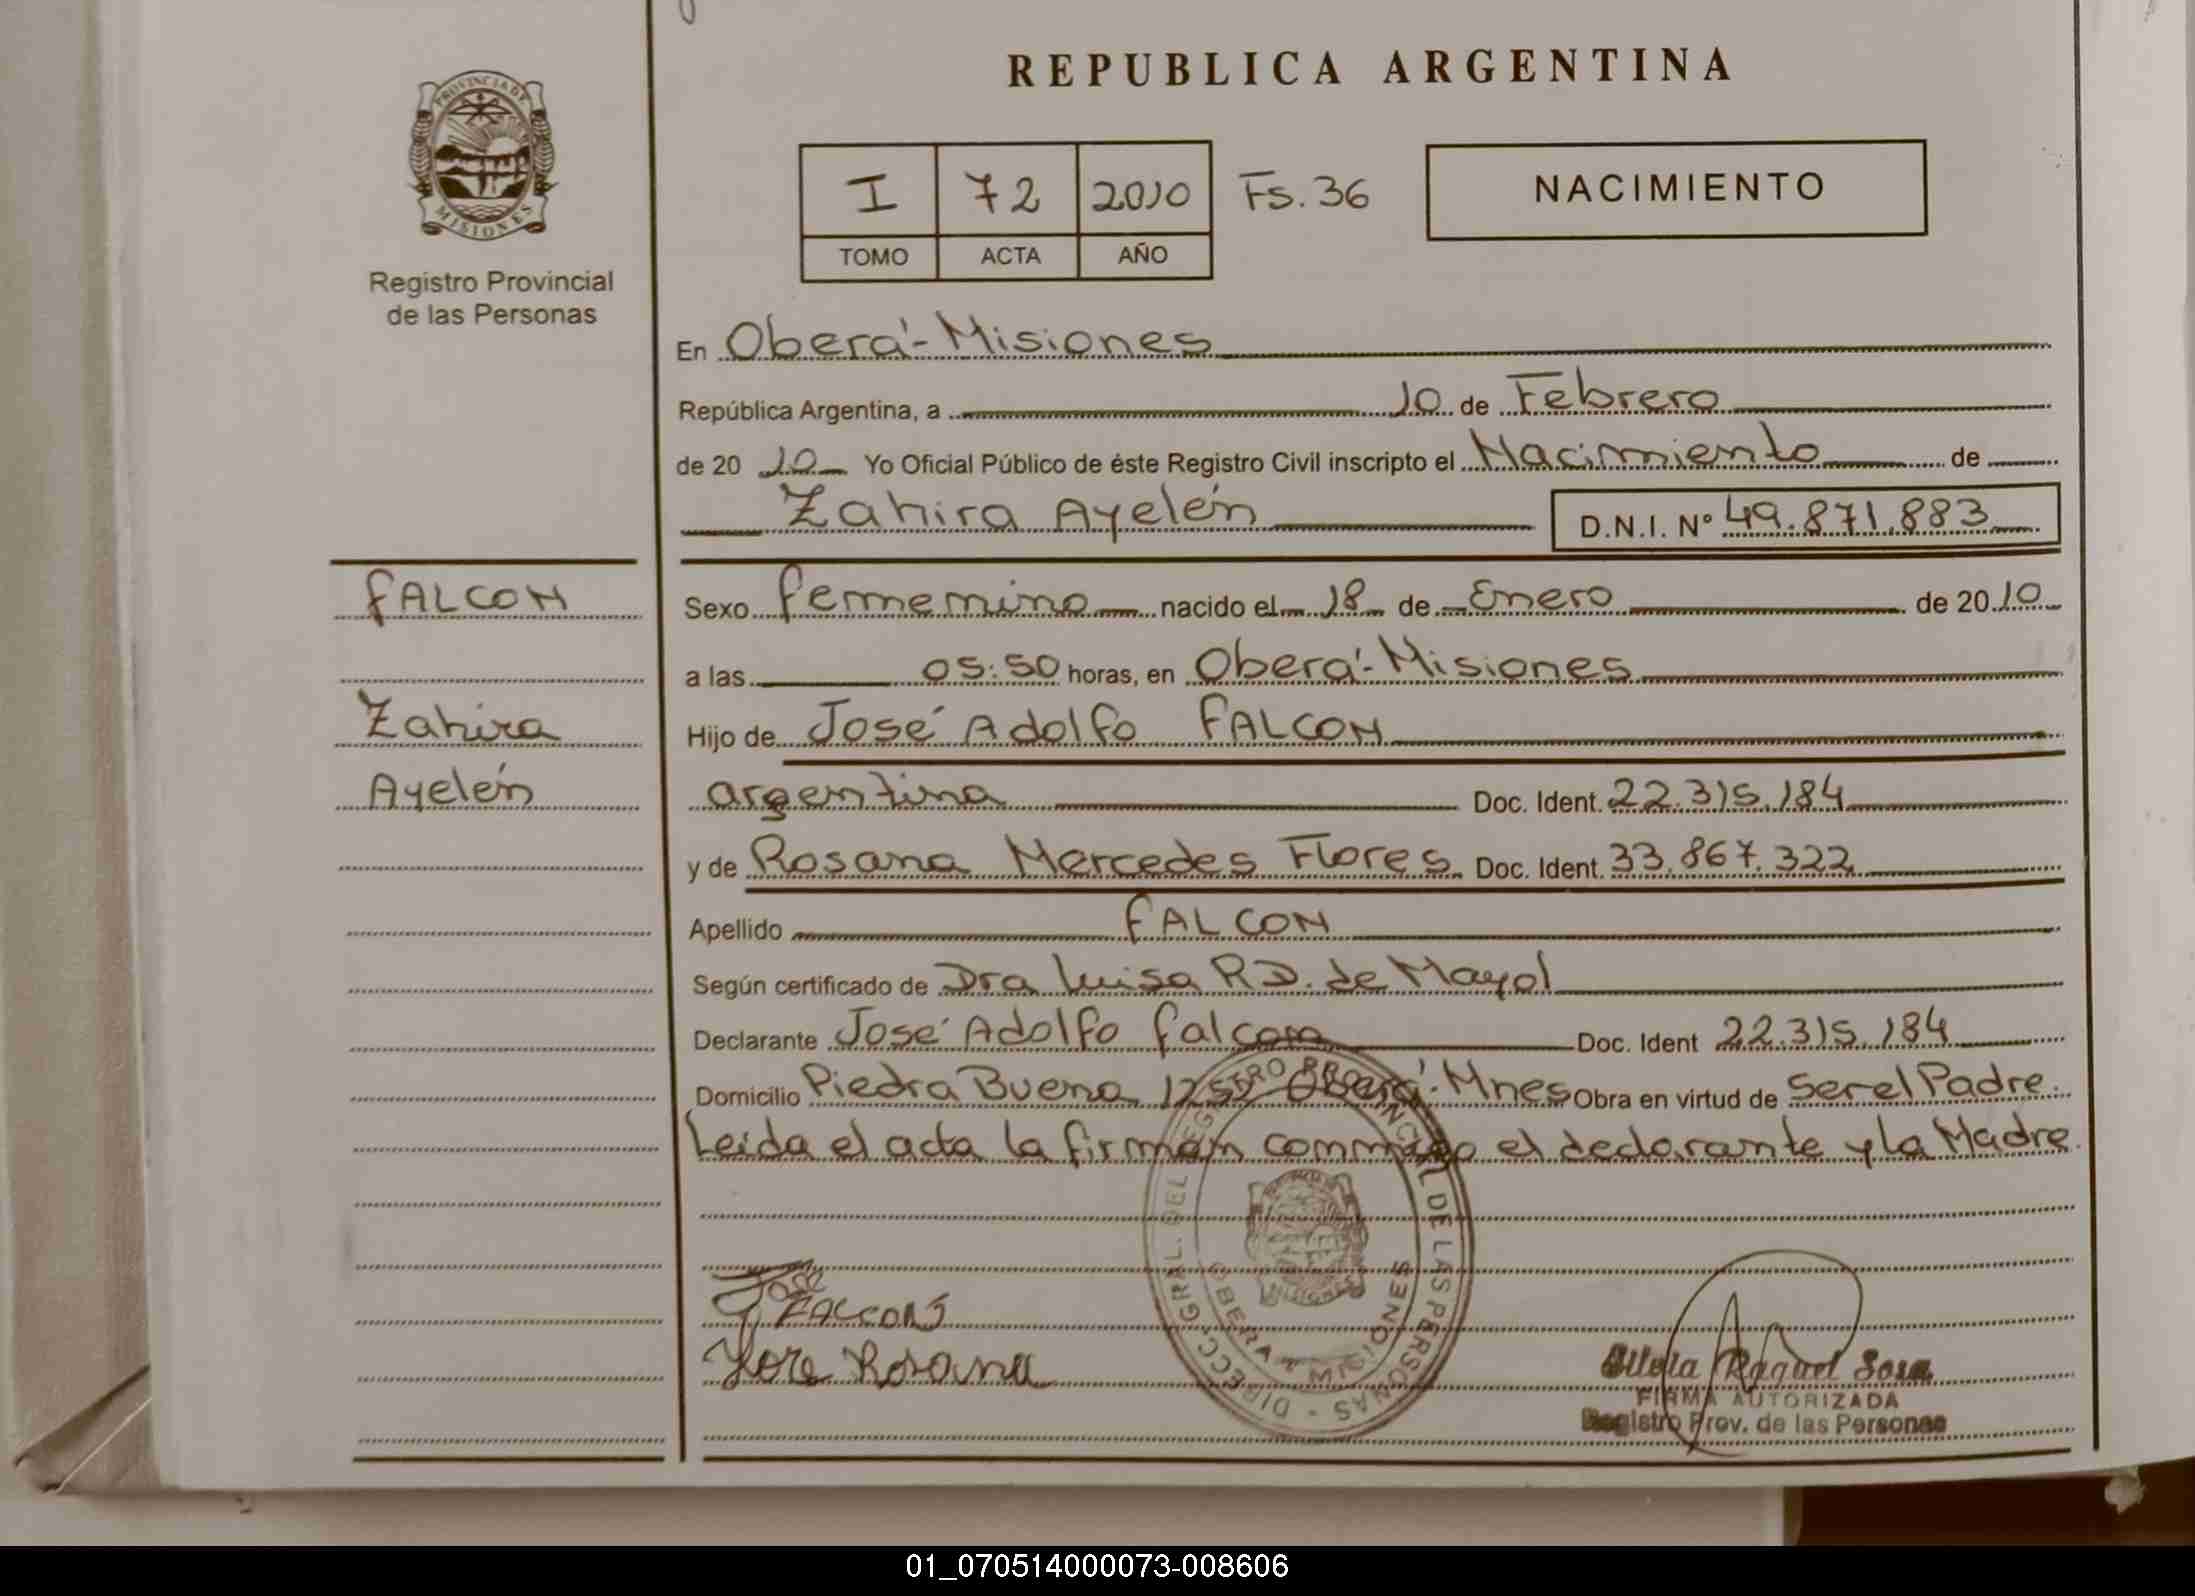 REPUBLICA ARGENTINA
PROVINCIA DE
MISIONES
Registro Provincial
de las Personas
I 72 2010 Fs. 36
TOMO ACTA AÑO
NACIMIENTO
En Oberá-Misiones
República Argentina, a 10 de Febrero
de 20 10 Yo Oficial Público de éste Registro Civil inscripto el Nacimiento de
Zahira Ayelén D.N.I. Nº 49.871.883
FALCON
Zahira
Ayelén
Sexo femenino nacido el 18 de Enero de 2010
a las 05:50 horas, en Oberá-Misiones
Hijo de José Adolfo FALCON
argentina Doc. Ident. 22.315.184
y de Rosana Mercedes Flores Doc. Ident. 33.867.322
Apellido FALCON
Según certificado de Dra Luisa R.D. de Mayol
Declarante José Adolfo Falcon Doc. Ident 22.315.184
Domicilio Piedra Buena 1255 Oberá-Mnes Obra en virtud de Ser el Padre.
Leida el acta la firman conmigo el declarante y la Madre.
DIRECC. GRAL. DEL REGISTRO PROVINCIAL DE LAS PERSONAS -
OBERA - MISIONES
José
FALCON
Flore Rosana
Raquel Sosa
FIRMA AUTORIZADA
Registro Prov. de las Personas
01_070514000073-008606